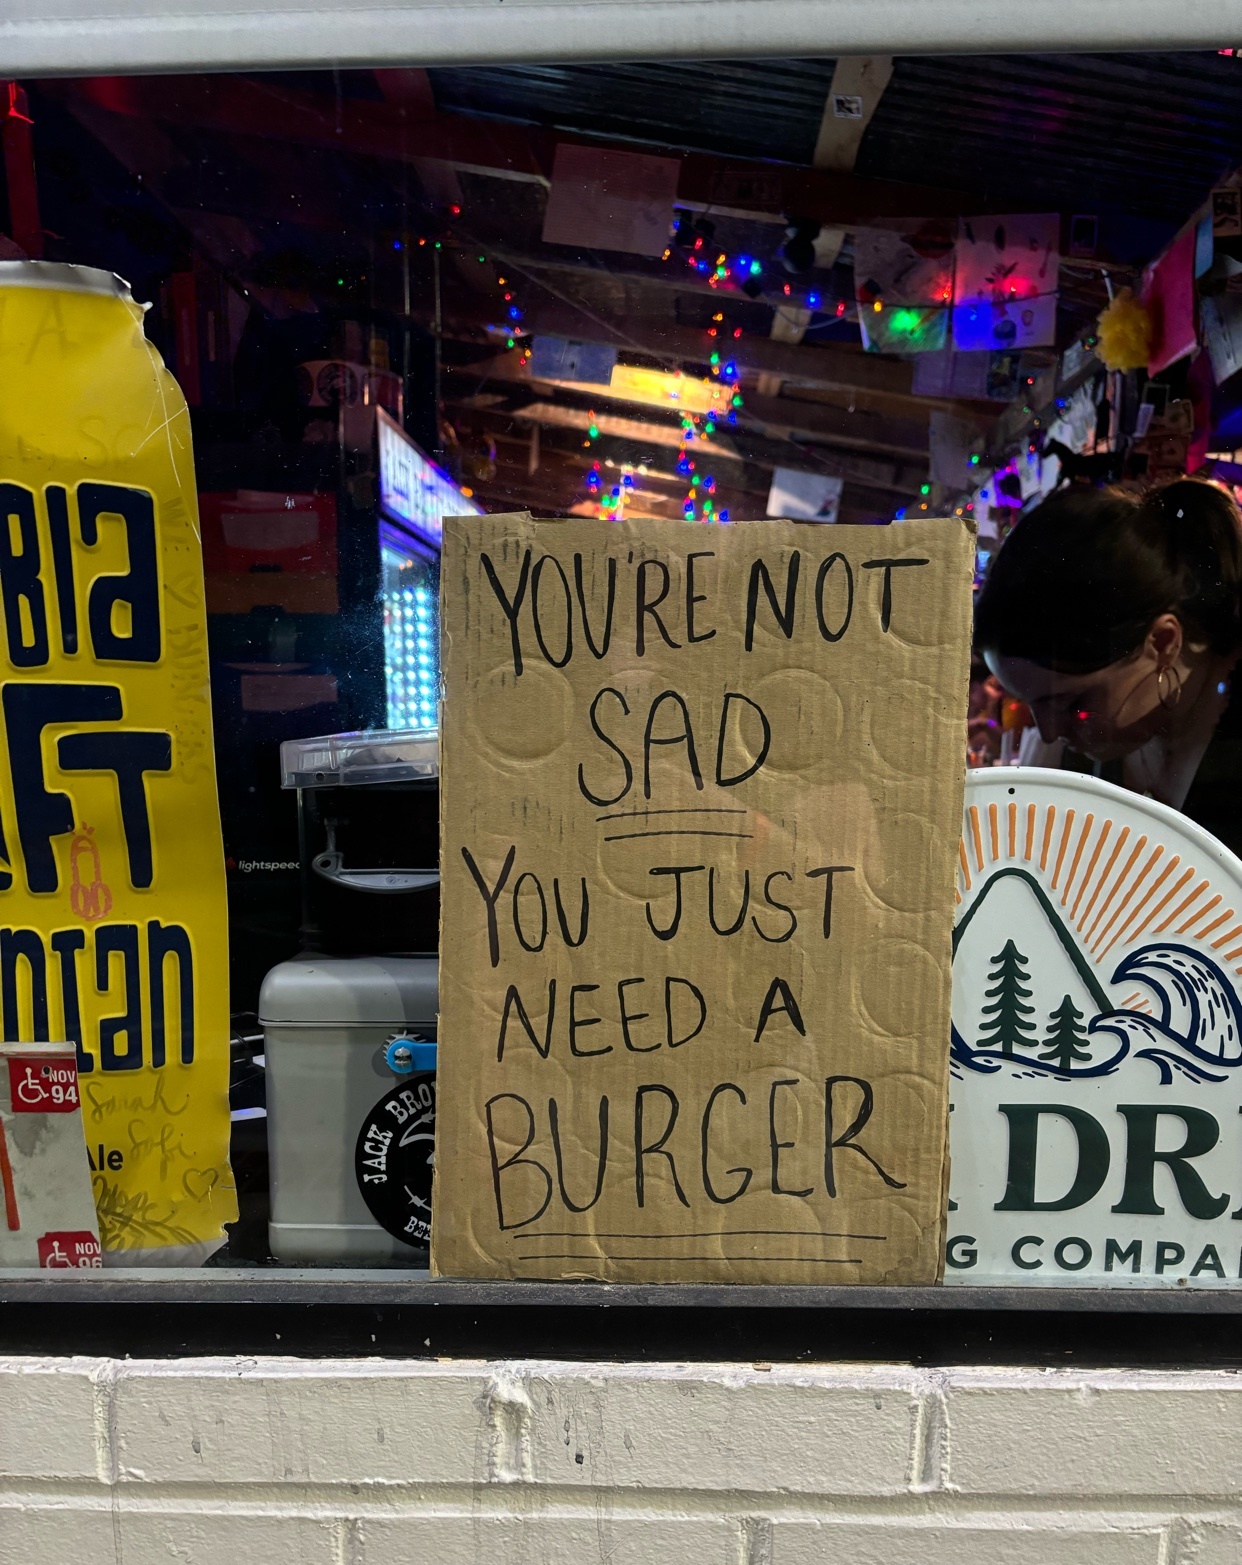 YOU'RE NOT
SAD
YOU JUST
NEED A
BURGER
BIA
FT
NTAN
Ale
Sarah
NOV
94
NOV
96
lightspeed
JACK BRO
BEE
DR
G COMPA